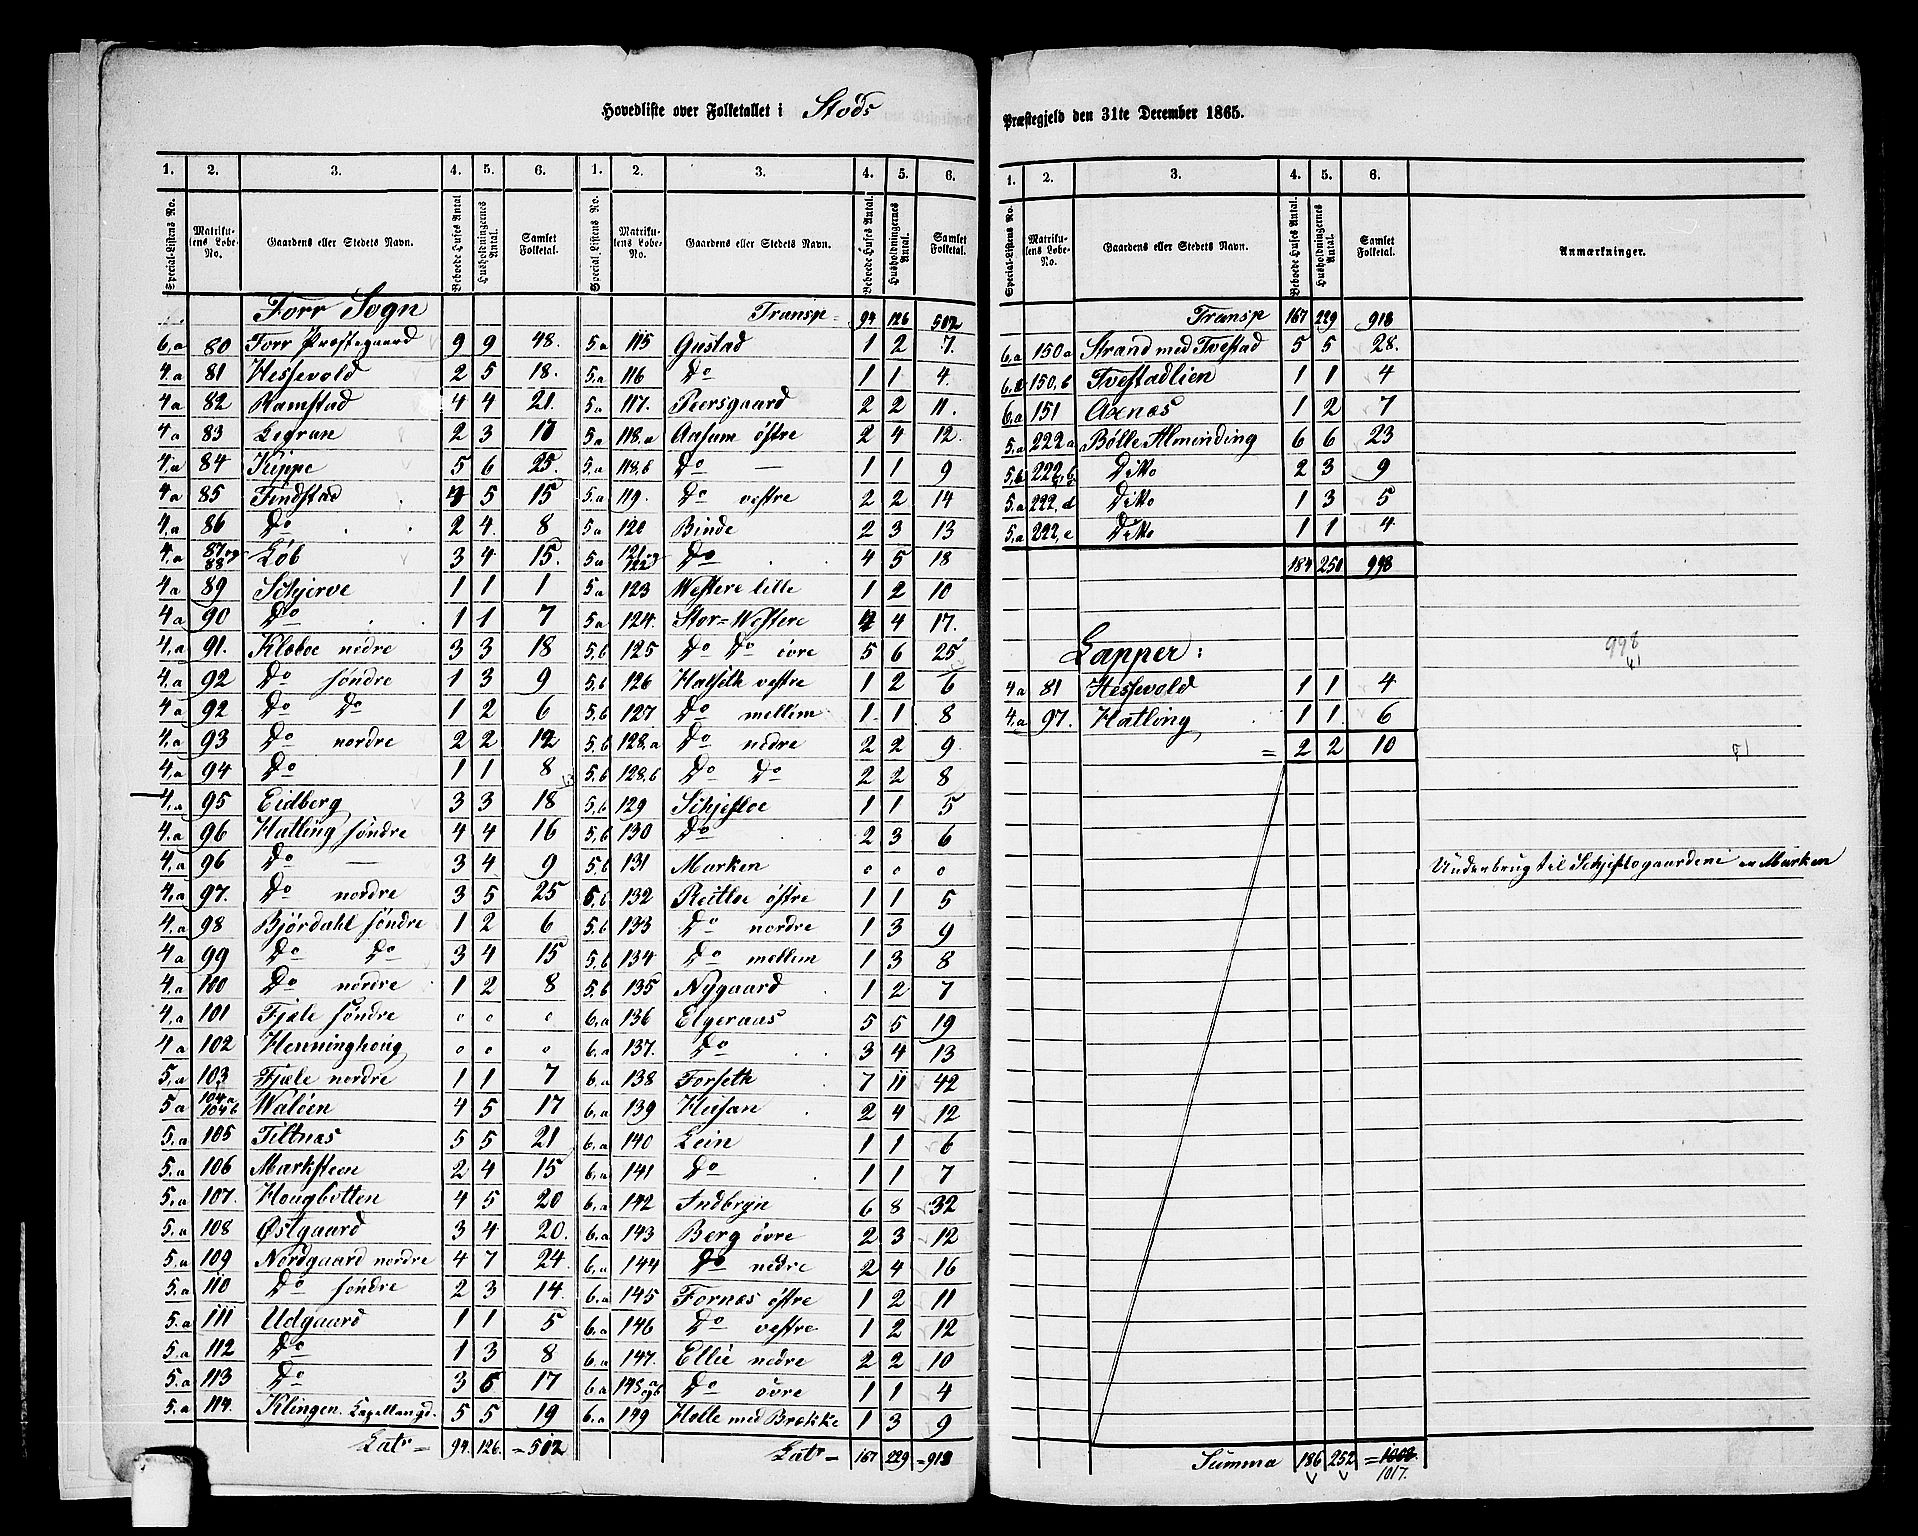 Hovedliste over Folketallet i Stods
1. 2. 3. 4. 5. 6. 1. 2. 3. 4. 5. 6.
Special-Listens No. Matrikulens Løbe-No. Gaardens eller Stedets Navn. Beboede Huses Antal Husholdningernes Antal. Samlet Folketal. Special-Listens No. Matrikulens Løbe-No. Gaardens eller Stedets Navn. Beboede Huses Antal. Husholdningernes Antal. Samlet Folketal.
Forr Sogn
6,a 80 Forr Præstegaard 9 9 48.
4,a 81 Hessevold 2 5 18.
4a 82 Ramstad 4 4 21.
4,a 83 Legran 2 3 17
4,a 84 Kippe 5 6 25.
4a 85 Findstad 4 5 15
4,a 86 Do 2 4. 8
4,a 87 og 88 Løb 3 4 15.
4a 89 Schjerve 1 1 1
4a 90 Do 1 1 7
4,a 91. Kleboe nedre 3 3 18
4,a 92 Do søndre 1 3 9
4a 92 Do Do 1 2 6
4,a 93 Do nordre 2 2 12
4,a 94 Do 1 1 8
4,a 95 Eidberg 3 3 18
4,a 96 Hatling søndre 4 4 16
4,a 96 Do — 3 4. 9
4,a 97. Do nordre 3 5 25
4,a 98 Bjørdahl søndre 1 2 6
4a 99 Do Do 3 4 15
4.a 100 Do nordre 1 2 8
4,a 101 Fjele søndre o o o
4a 102 Henninghoug o o o
5,a 103 Fjæle nordre 1 1 7
5a 104a 104b Waløen 4 5 17
5.a 105 Tiltnæs 5 5 21
5.a 106 Marksteen 2 4 15
5,a 107. Hougbotten 4 5 20
5.a 108 Østgaard 3 4 20.
5.a 109 Nordgaard nordre 4 7 24.
5.a 110 Do søndre 2 3 14.
5.a 111 Udgaard 1 1 5
5.a 112 Do 1 3 8
5.a 113 Do 3 6 17
5.a 114. Klingen. Capellangd. 5 5 19
Lats = 94. 126. = 502
Transp = 94 126 502
5a 115 Gustad 1 2 7.
5.a 116 Do 1 1 4.
5a 117. Peersgaard 2 2 11.
5a 118.a Aasum østre 2 4 12.
5.a 118.b Do — 1 1 9
5.a 119. Do vestre 2 2 14
5a 120 Binde 2 3 13
5a 121 og 122 Do 4 5 18
5.a 123 Westere lille 1 2 10
5a 124. Stor=Westere 4 4 17.
5,b 125 Do Do øvre 5 6 25
5,b 126 Hatseth vestre 1 2 6
5,b 127 Do mellem 1. 1. 8
5.b 128.a Do nedre 2 2 9
5.b 128.b Do Do 2 2 8
5,b 129 Schjefloe 1 1 5
5,b 130 Do 2 3 6
5.b 131 Marken o o o
5,b 132 Reitloe østre 1 1 5
5.b 133 Do nordre 1 3 9
5.b 134 Do mellem 1 3 8
5.b 135 Nygaard 1 2 7
6.a 136 Elgeraas 5 5 19
6.a 137. Do 3 4 13
6.a 138 Forseth 7 11 42
6.a 139 Husan 2 4 12
6.a 140 Lein 1 1 6
6.a 141 Do 1 1 7
6.a 142 Indbryn 6 8 32
6.a 143 Berg øvre 2 3 12
6.a 144 Do nedre 2 4 16
6.a 145 Fornes østre 1 2 11
6.a 146 Do vestre 1 2 12
6.a 147. Ellie nedre 2 2 10
6a 148 a og b Do øvre 1 1 4
6.a 149 Holte med Brække 1 3 9
Lats = 167 229 = 918
Præstegjeld den 31te December 1865.
1. 2. 3. 4. 5. 6.
Special-Listens No. Matrikulens Løbe-No. Gaardens eller Stedets Navn. Beboede Huses Antal. Husholdningernes Antal. Samlet Folketal. Anmærkninger.
Transp 167 229 918
6.a 150a Strand med Tvestad 5 5 28.
150,b Tvestadlien 1 1 4
6.a 151 Axnæs 1 2 7
5.a 222a Bølle Alminding 6 6 23
5,b Ditto 2 3 9
5.a 222.d Ditto 1 3 5
5.a 222,e Ditto 1 1 4
184 250 998
Lapper:
998
41
4a 81 Hessevold 1 1 4
4,a 97. Hatling 1 1. 6
= 2 2 10
Underbrug til Schjeflogaardene er Marken
Summa 186 252 = 1008
1017.